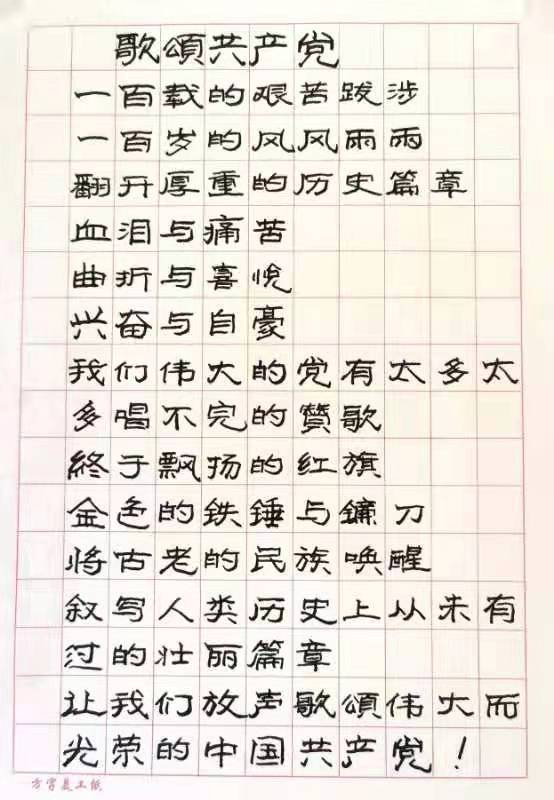 歌頌共产党
一百载的艰苦跋涉
一百岁的风风雨雨
翻开厚重的历史篇章
血泪与痛苦
曲折与喜悦
兴奋与自豪
我们伟大的党有太多太
多唱不完的赞歌
终于飘扬的红旗
金色的铁锤与镰刀
将古老的民族唤醒
叙写人类历史上从未有
过的壮丽篇章
让我们放声歌頌伟大而
光荣的中国共产党！
方宫美工纸